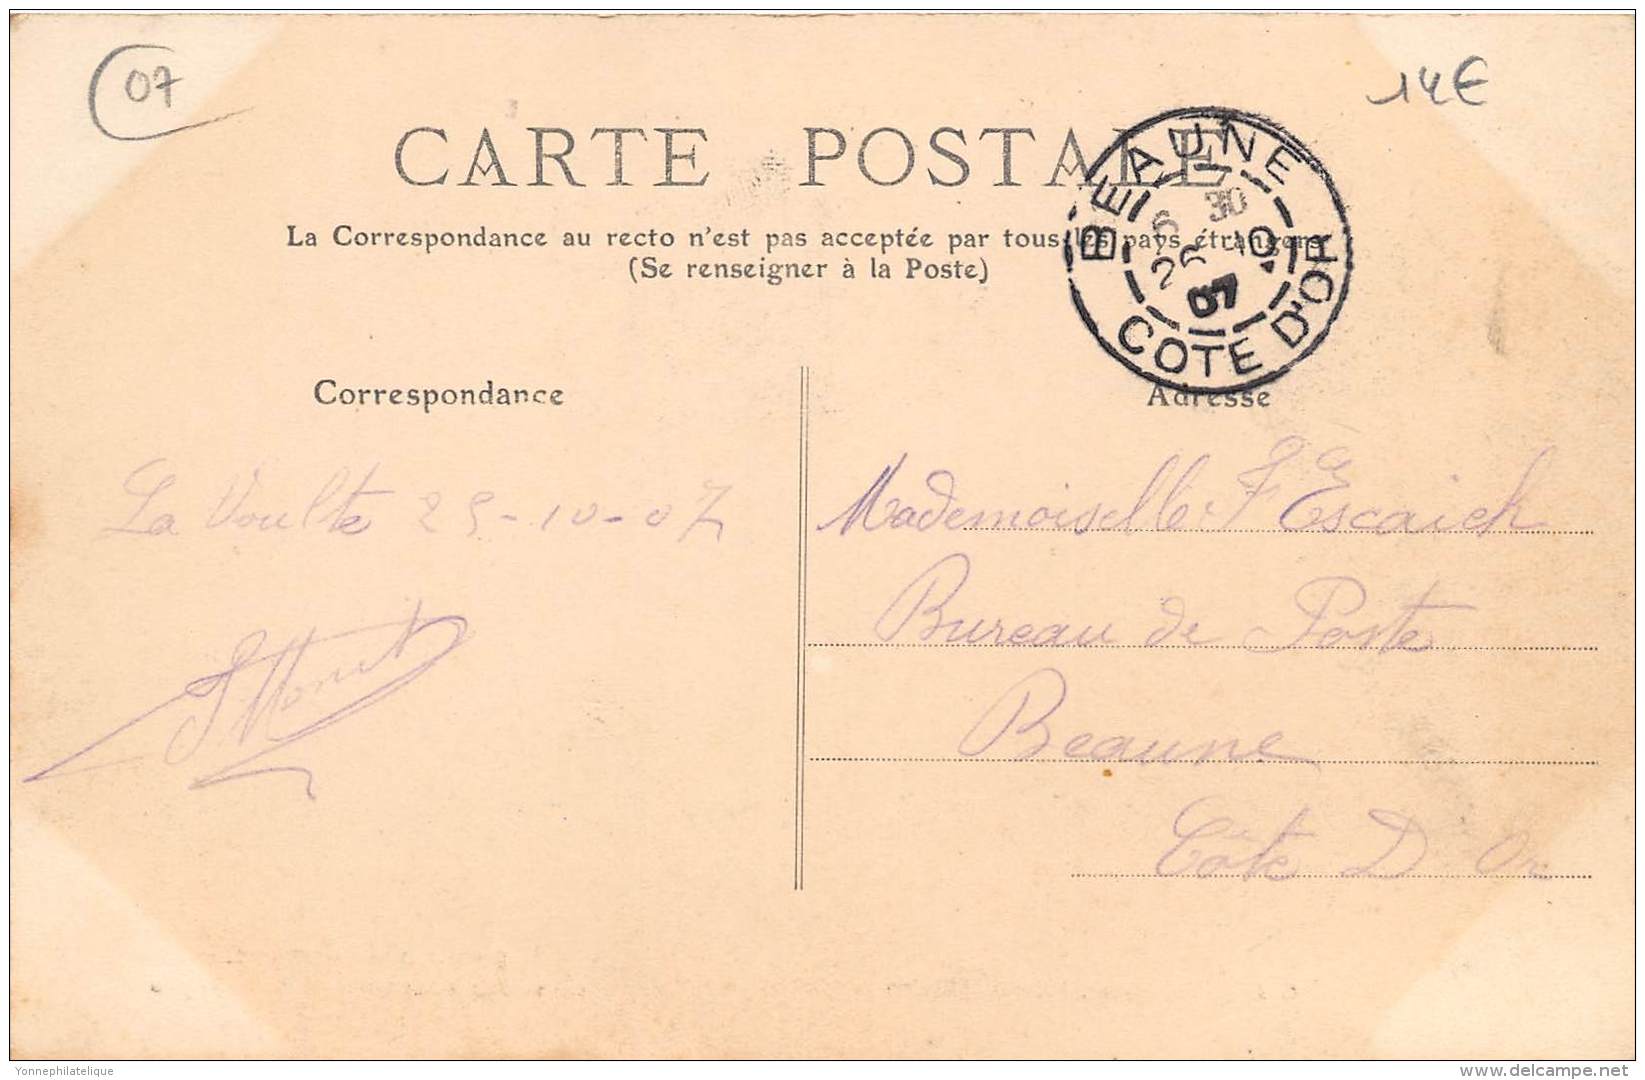 07
14€
CARTE POSTALE
La Correspondance au recto n'est pas acceptée par tous les pays étrangers
(Se renseigner à la Poste)
BEAUNE
6 30
10
COTE D'OR
Correspondance
Adresse
La Voulte 25-10-07
Mademoiselle F Escaich
Bureau de Poste
Beaune
Côte D Or
Yonnephilatelique
www.delcampe.net